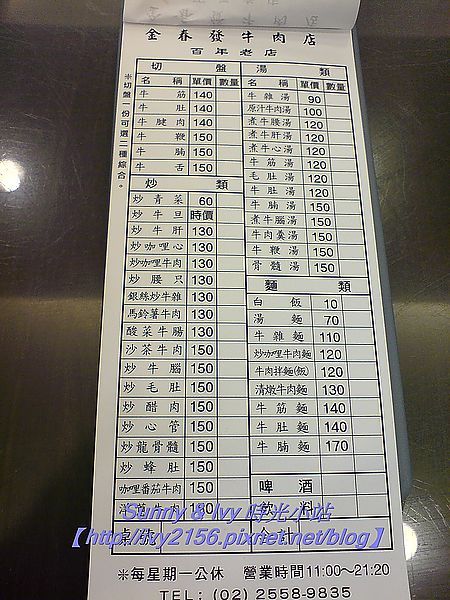 金春發牛肉店
百年老店
※切盤一份可選二種綜合。
切盤
名稱 單價 數量
牛筋 140
牛肚 140
牛腱肉 140
牛鞭 150
牛腩 150
牛舌 150
炒類
炒青菜 60
炒牛旦 時價
炒牛肝 130
炒咖哩心 130
炒咖哩牛肉 130
炒腰只 130
銀絲炒牛雜 130
馬鈴薯牛肉 130
酸菜牛腸 130
沙茶牛肉 150
炒牛腦 150
炒毛肚 150
炒醋肉 150
炒心管 150
炒龍骨髓 150
炒蜂肚 150
咖哩番茄牛肉 150
洋蔥牛肉 180
桌號
湯類
名稱 單價 數量
牛雜湯 90
原汁牛肉湯 100
煮牛腰湯 120
煮牛肝湯 120
煮牛心湯 120
牛筋湯 120
毛肚湯 120
牛肚湯 120
牛腩湯 150
煮牛腦湯 150
牛肉羹湯 150
牛鞭湯 150
骨髓湯 150
麵類
白飯 10
湯麵 70
牛雜麵 110
炒咖哩牛肉麵 120
牛肉拌麵(飯) 120
清燉牛肉麵 130
牛筋麵 140
牛肚麵 140
牛腩麵 170
啤酒
飲料
合計
Sunny & Ivy 時光小站
【http://ivy2156.pixnet.net/blog】
※每星期一公休 營業時間11:00～21:20
TEL: (02) 2558-9835